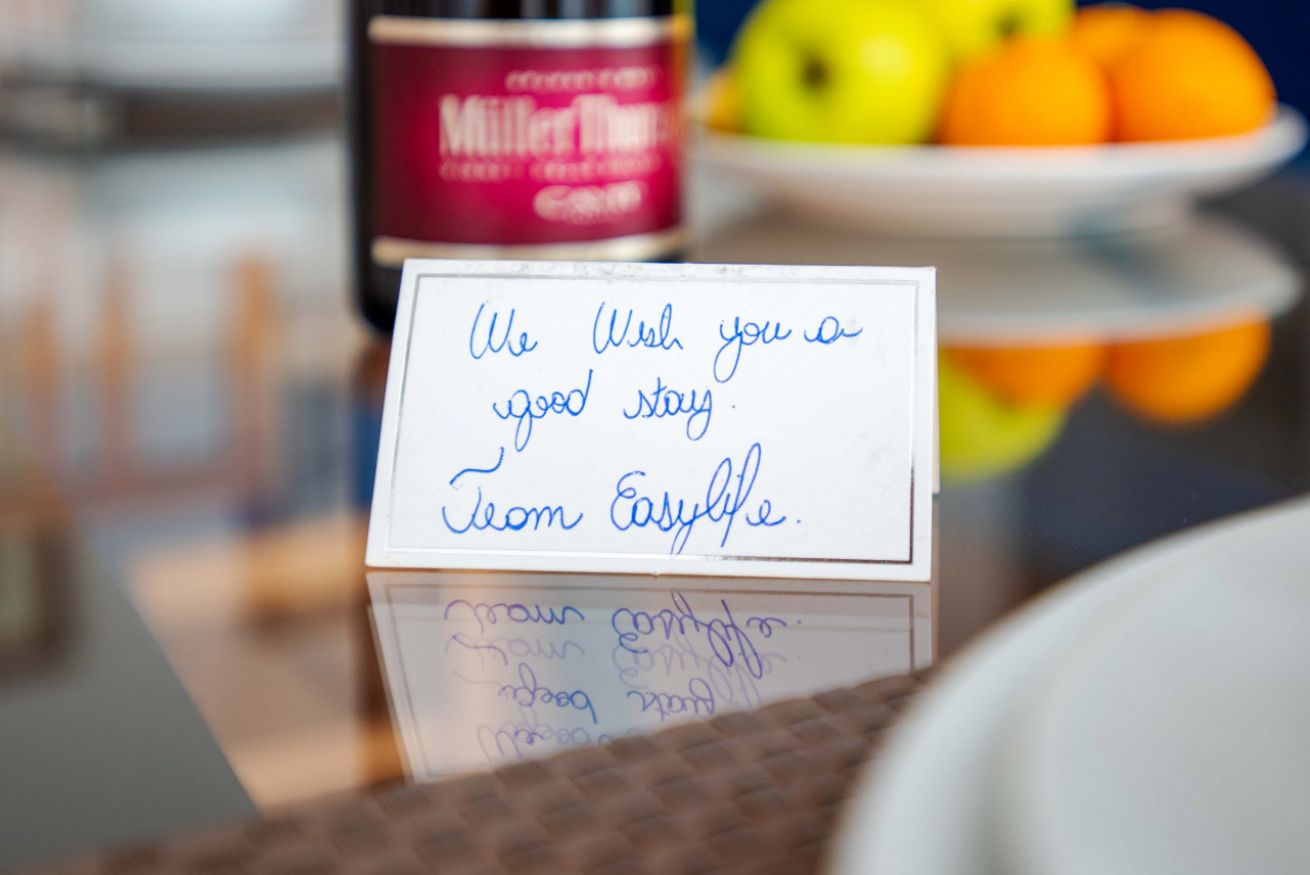 MüllerThur
We Wish you a
good stay.
Team Easylife.